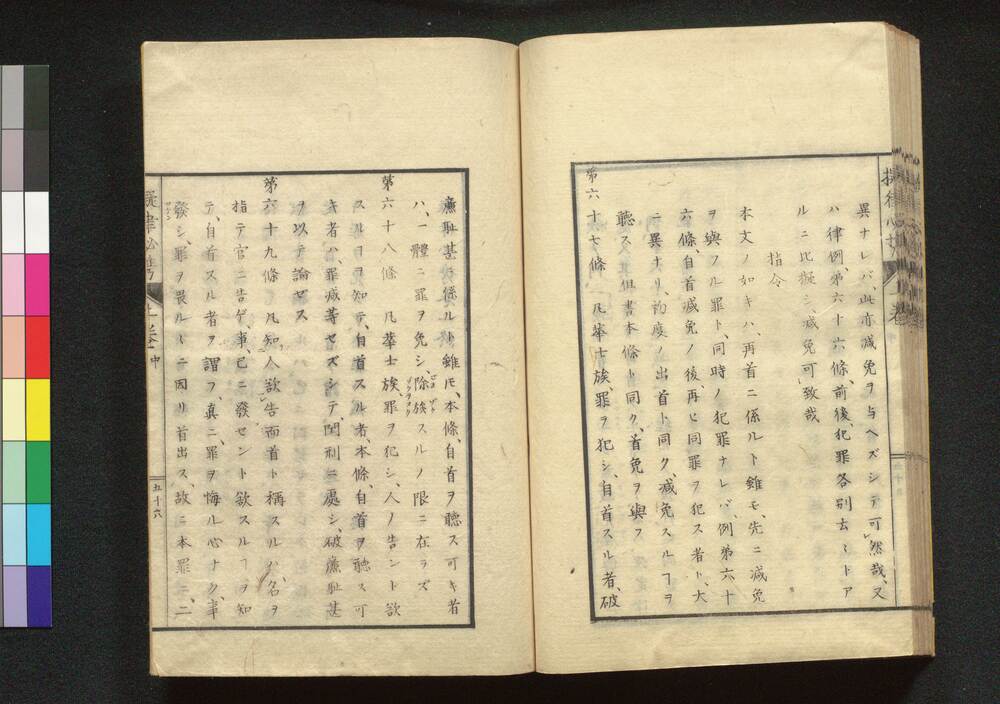 異ナレバ、此亦減免ヲ与ヘズシテ可然哉、又
ハ律例、第六十六條、前後、犯罪各別去々トア
ルニ比擬シ、減免可致哉
指令
本文ノ如キハ、再首ニ係ルト雖モ、先ニ減免
ヲ與フル罪ト、同時ノ犯罪ナレバ、例第六十
六條、自首減免ノ後、再ヒ同罪ヲ犯ス者ト、大
ニ異ナリ、初度ノ出首ト同ク、減免スルヿヲ
聽ス、又但書本條ト同ク、首免ヲ與フ
第六十七條 凡華士族罪ヲ犯シ、自首スル者、破
廉耻甚ニ係ルト雖モ、本條、自首ヲ聽ス可キ者
ハ、一體ニ罪ヲ免シ、除族スルノ限ニ在ラズ
第六十八條 凡華士族、罪ヲ犯シ、人ノ告ント欲
スルヲ知テ、自首スル者、本條、自首ヲ聽ス可
キ者ハ、罪減等セズシテ、閏刑ニ處シ、破廉耻甚
ヲ以テ論セズ
第六十九條 凡知人欲告而首ト稱スルハ、名ヲ
指テ官ニ告ゲ、事、已ニ發セント欲スルヿヲ知
テ、自首スル者ヲ謂フ、真ニ罪ヲ悔ル心ナク、事
發シ、罪ヲ畏ルヽニ因リ首出ス、故ニ本罪ニ、二
擬律必携 上卷 中
五十六